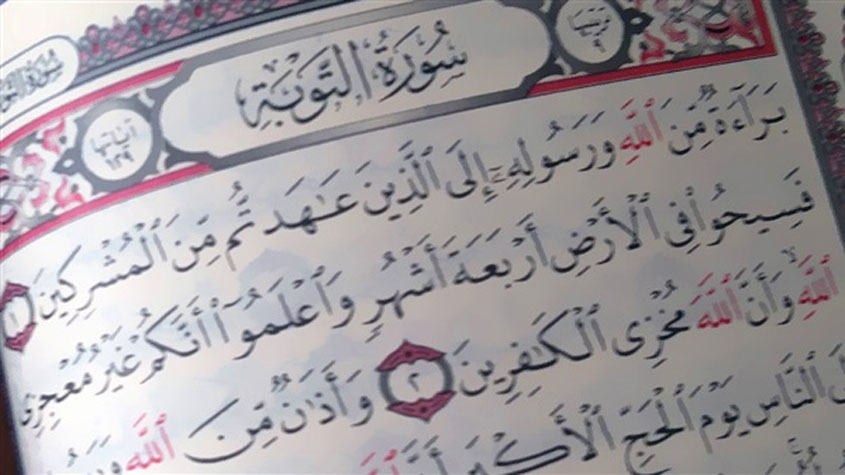 سُورَةُ التَّوْبَةِ
ترتيبها ٩
آياتها ١٢٩
بَرَآءَةٌ مِّنَ ٱللَّهِ وَرَسُولِهِۦٓ إِلَى ٱلَّذِينَ عَـٰهَدتُّم مِّنَ ٱلْمُشْرِكِينَ ١
فَسِيحُوا۟ فِى ٱلْأَرْضِ أَرْبَعَةَ أَشْهُرٍ وَٱعْلَمُوٓا۟ أَنَّكُمْ غَيْرُ مُعْجِزِى
ٱللَّهِ ۙ وَأَنَّ ٱللَّهَ مُخْزِى ٱلْكَـٰفِرِينَ ٢ وَأَذَٰنٌ مِّنَ ٱللَّهِ
ٱلنَّاسِ يَوْمَ ٱلْحَجِّ